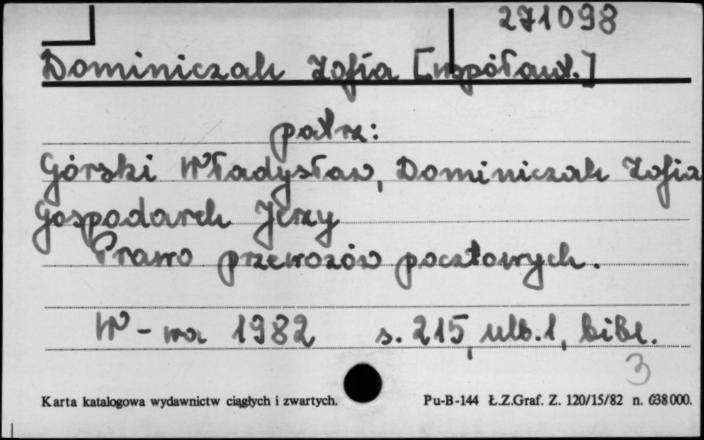 271098
Dominiczak Zofia [współaut.]
patrz:
Górski Władysław, Dominiczak Zofia
Gospodarek Jerzy
Prawo przewozów pocztowych.
W-wa 1982 s. 215, nlb. 1, bibl.
3
Karta katalogowa wydawnictw ciągłych i zwartych. Pu-B-144 Ł.Z.Graf. Z. 120/15/82 n. 638 000.